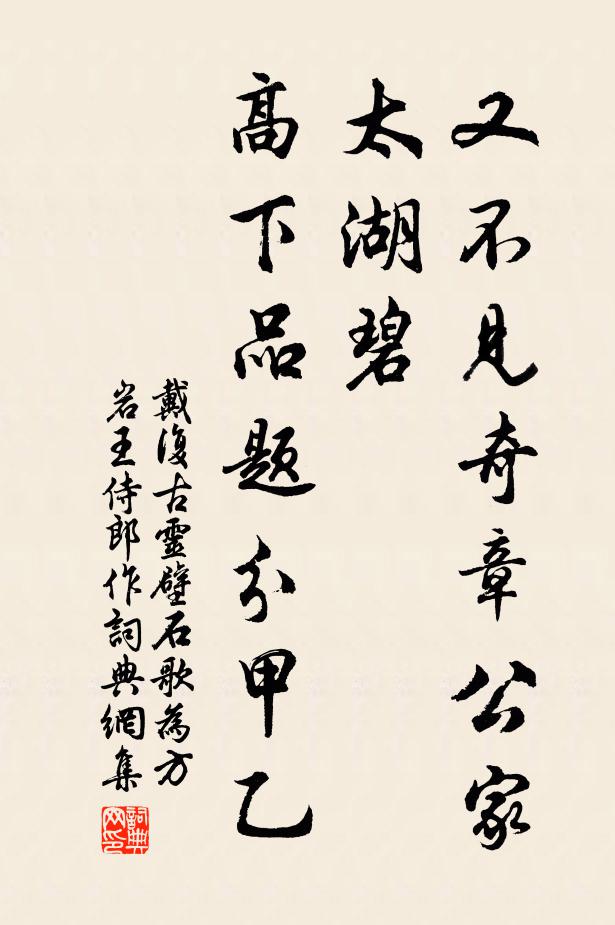 又不見奇章公家
太湖碧
高下品題分甲乙
戴復古靈壁石歌為方
岩王侍郎作詞典網集
詞典
网印